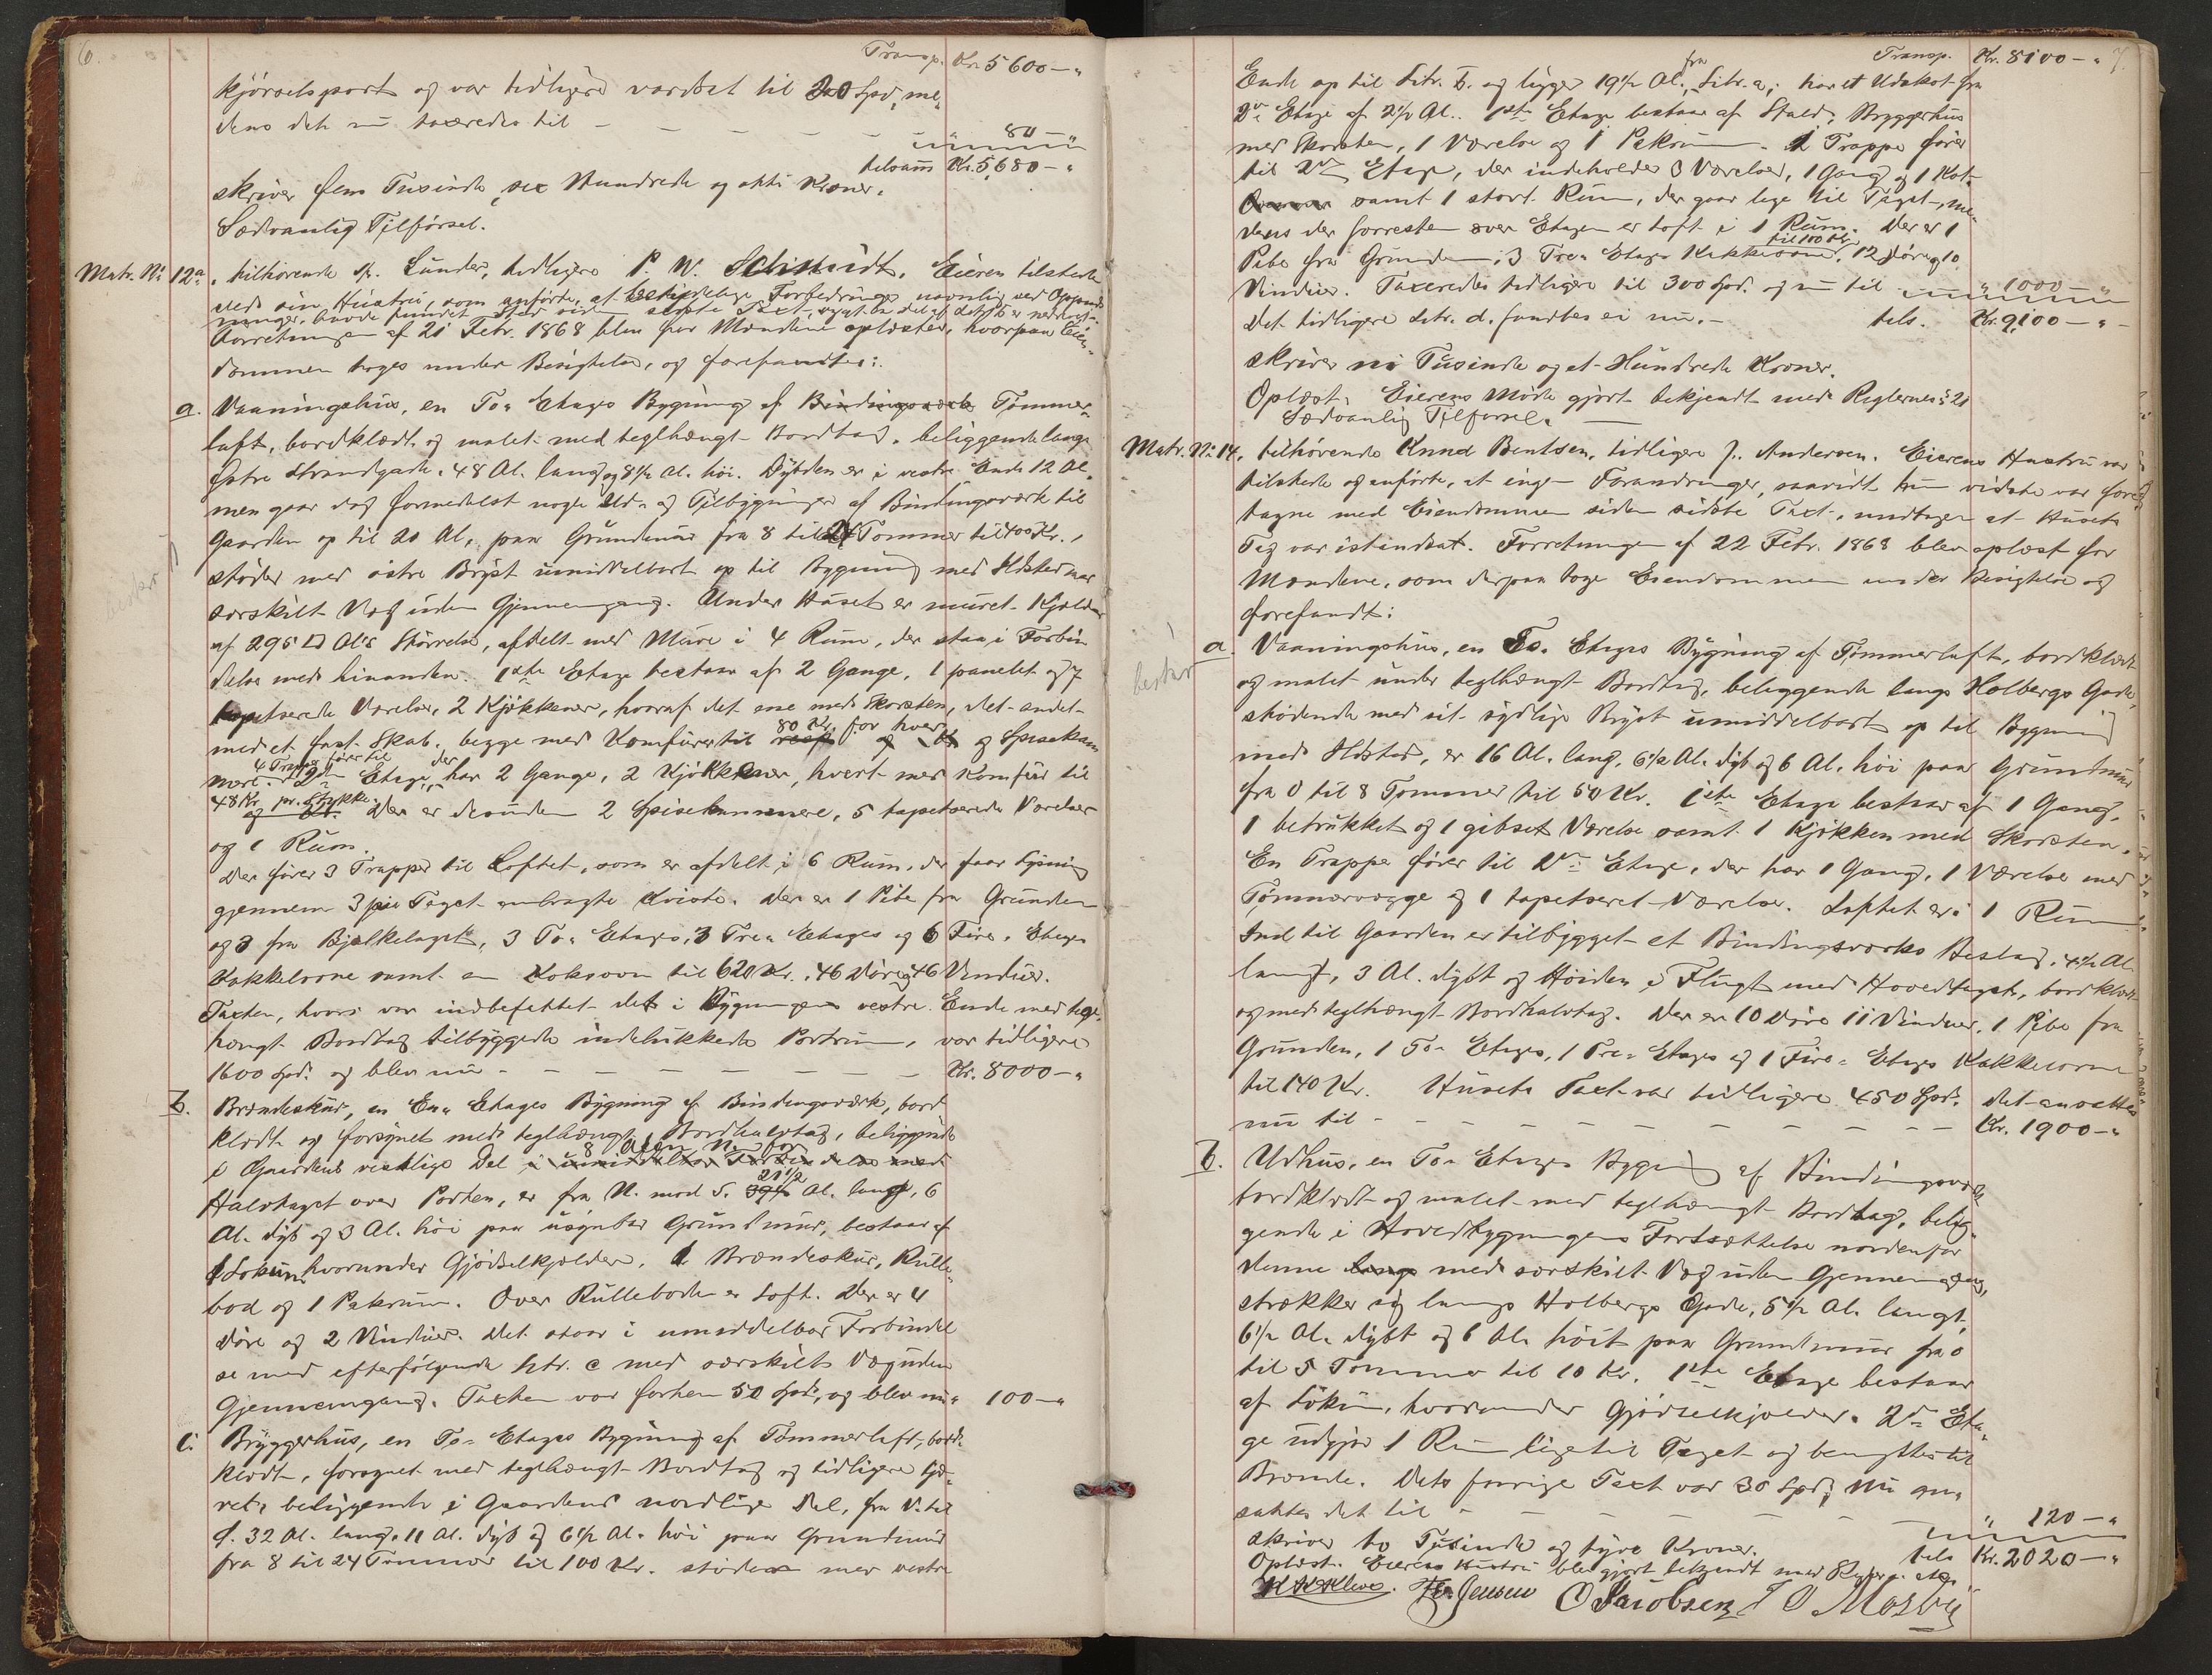 6.
Transp. Kr. 5600 — "
kjørselsport og var tidligere værdsat til 20 Spd, me-
dens det nu taxeredes til — — — — — — " 80 — "
tilsam̄ Kr. 5,680 — "
skriver fem Tusinde, sex Hundrede og otti Kroner.
Sædvanlig Tilførsel.
Matr. No 12a, tilhørende Lunder, tidligere P. W. Schmidt. Eieren tilstede
ved sin Hustru, som anførte, at betydelige Forbedringer navnlig ved Oppuds-
ninger, havde fundet Sted siden sidste Taxt, 
Forretningen af 21 Febr. 1868 blev for Mændene oplæst, hvorpaa Eien-
dommen toges under Besigtelse, og forefandtes:
a. Vaaningshus, en To- Etages Bygning af Bindingsværk Tømmer-
laft, bordklædt og malet med teglhængt Bordtag, beliggende langs
østre Strandgade. 48 Al. lang og 8 1/2 Al. høi. Dybden er i vestre Ende 12 Al.
men gaar dog formedelst nogle Ud- og Tilbygninger af Bindingsværk til
Gaarden op til 20 Al, paa Grundmur fra 8 til 24 Tommer til 400 Kr.,
støder med østre Bryst umiddelbart op til Bygning med Ildsted med
særskilt Væg uden Gjennemgang. Under Huset er muret Kjælder
af 295 □ Al's Størrelse, afdelt med Mure i 4 Rum, der staa i Forbin-
delse med hinanden. 1ste Etage bestaar af 2 Gange, 1 panelet og 7
tapetserede Værelser, 2 Kjøkkener, hvoraf det ene med Skorsten, det andet
med et fast Skab, begge med Komfurer til 80 Kr. for hver og Spisekam-
mere. 4 Trapper fører til 2den Etage, der har 2 Gange, 2 Kjøkkener, hvert med Komfur til
48 Kr. pr. Stykke. Der er desuden 2 Spisekammere, 5 tapetserede Værelser
og 1 Rum.
Der fører 3 Trapper til Loftet, som er afdelt i 6 Rum, der faar Lysning
gjennem 3 paa Taget anbragte Kviste. Der er 1 Pibe fra Grunden
og 3 fra Bjælkelaget, 3 To- Etages, 3 Tre- Etages og 6 Fire- Etages
Kakkelovne samt en Koksovn til 620 Kr., 46 Døre og 46 Vinduer.
Taxten, hvori var indbefattet det i Bygningens vestre Ende med tegl-
hængt Bordtag tilbyggede indelukkede Portrum, var tidligere
1600 Spd. og blev nu — — — — — — — — Kr. 8000 — "
b. Brændeskur, en En- Etages Bygning af Bindingsværk, bord-
klædt og forsynet med teglhængt Bordhalvtag, beliggende
i Gaardens vestlige Del 8 Alen N. for i umiddelbar Forbindelse med
Halvtaget over Porten, er fra N. mod S. 21 1/2 Al. langt, 6
Al. dyb og 3 Al. høi paa usynbar Grundmur, bestaar af
1 Lokum, hvorunder Gjødselkjælder, 1 Brændeskur, Rulle-
bod og 1 Pakrum. Over Rulleboden er Loft. Der er 4
Døre og 2 Vinduer. Det staar i umiddelbar Forbindel-
se med efterfølgende Litr. c med særskilt Væg uden
Gjennemgang. Taxten var forhen 50 Spd, og blev nu " 100 — "
c. Bryggerhus, en To- Etages Bygning af Tømmerlaft, bord-
klædt, forsynet med teglhængt Bordtag og tidligere tjæ-
ret, beliggende i Gaardens nordlige Del, fra V. til
Ø. 32 Al. lang, 11 Al. dyb og 6 1/2 Al. høi paa Grundmur
fra 8 til 24 Tommer til 100 Kr. støder med vestre
Transp. Kr. 8100 — " 7.
Ende op til Litr. b. og ligger 19 1/2 Al. fra Litr. a; har et Udskot fra
2den Etage af 2 1/2 Al. 1ste Etage bestaar af Stald, Bryggerhus
med Skorsten, 1 Værelse og 1 Pakrum. 1 Trappe fører
til 2den Etage, der indeholder 3 Værelser, 1 Gang og 1 Kot
samt 1 stort Rum, der gaar lige til Taget, me-
dens der forresten over Etagen er Loft i 1 Rum. Der er 1
Pibe fra Grunden, 3 Tre- Etages Kakkelovne til 100 Kr, 12 Døre og 10
Vinduer. Taxeredes tidligere til 300 Spd. og nu til " 1000 — "
Det tidligere Litr. d. fandtes ei nu. — tils. Kr. 9,100 — "
skriver ni Tusinde og et Hundrede Kroner.
Oplæst. Eierens Møde gjort bekjendt med Reglernes § 21
Sædvanlig Tilførsel. —
Matr. No 14, tilhørende Knud Bentsen, tidligere J. Andersen. Eierens Hustru var
tilstede og anførte, at ingen Forandringer, saavidt hun vidste var fore-
tagne med Eiendommen siden sidste Taxt, undtagen at Husets
Tag var istandsat. Forretningen af 22 Febr. 1868 blev oplæst for
Mændene, som derpaa toge Eiendommen under Besigtelse og
forefandt:
a. Vaaningshus, en To- Etages Bygning af Tømmerlaft, bordklædt
og malet under teglhængt Bordtag, beliggende langs Holbergs Gade,
stødende med sit sydlige Bryst umiddelbart op til Bygning
med Ildsted, er 16 Al. lang, 6 1/2 Al. dyb og 6 Al. høi paa Grundmur
fra 0 til 8 Tommer til 50 Kr. 1ste Etage bestaar af 1 Gang,
1 betrukket og 1 gibset Værelse samt 1 Kjøkken med Skorsten.
En Trappe fører til 2den Etage, der har 1 Gang, 1 Værelse med
Tømmervægge og 1 tapetseret Værelse. Loftet er i 1 Rum
Ind til Gaarden er tilbygget et Bindingsværks Beslag, 4 1/2 Al.
langt, 3 Al. dybt og Høiden i Flugt med Hovedtaget, bordklædt
og med teglhængt Bordhalvtag. Der er 10 Døre 11 Vinduer, 1 Pibe fra
Grunden, 1 To- Etages, 1 Tre- Etages og 1 Fire- Etages Kakkelovne
til 140 Kr. Husets Taxt var tidligere 450 Spd. Det ansattes
nu til — — — — — — — — — Kr. 1900 — "
b. Udhus, en To- Etages Bygning af Bindingsværk
bordklædt og malet med teglhængt Bordtag, belig-
gende i Hovedbygningens Fortsættelse nordenfor
denne langs med særskilt Væg uden Gjennemgang,
strækker sig langs Holbergs Gade, 5 1/2 Al. langt,
6 1/2 Al. dybt og 6 Al. høit paa Grundmur fra 0
til 5 Tommer til 10 Kr. 1ste Etage bestaar
af Lokum, hvorunder Gjødselkjælder. 2den Eta-
ge udgjør 1 Rum lige til Taget og benyttes til
Brænde. Dets forrige Taxt var 30 Spd, nu an-
sattes det til — — — — — — " 120 — "
skriver to Tusinde og tyve Kroner. tils Kr. 2020 — "
Oplæst. Eierens Hustru blev gjort bekjendt med
Jensen O Jacobsen T O Mosby